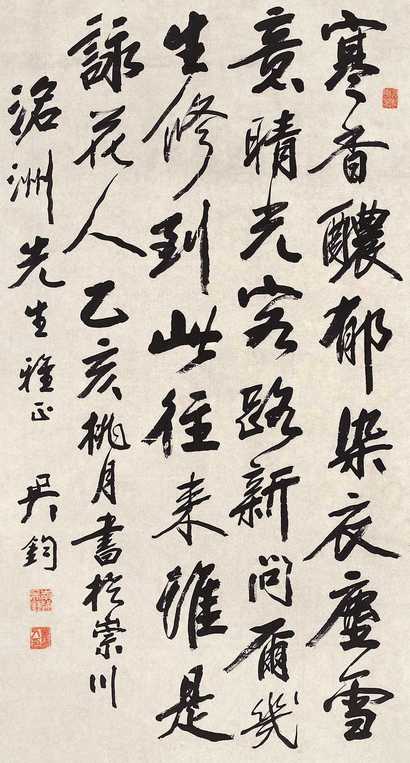 寒香醲郁染衣塵雪
意晴光客路新問爾幾
生修到此往來誰是
詠花人乙亥桃月書於崇川
洺洲先生雅正 吳鈞